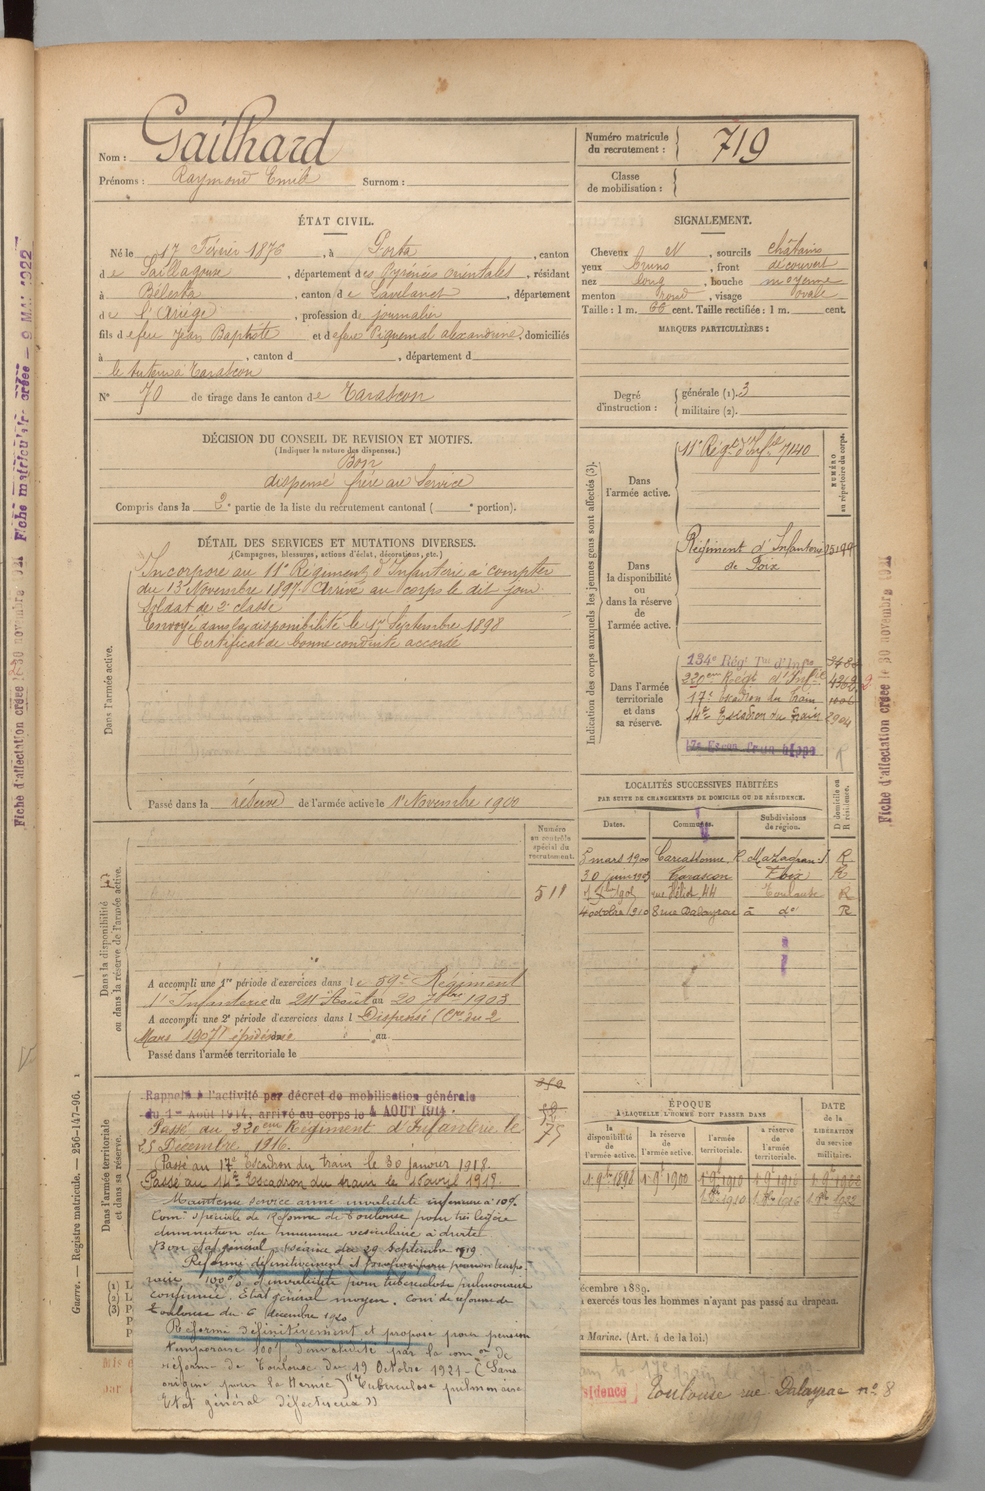 Nom : Gailhard
Prénoms : Raymond Emile Surnom :
Numéro matricule du recrutement : 719
Classe de mobilisation :
ÉTAT CIVIL.
Né le 17 Février 1876, à Porta, canton
de Saillagouse, département des Pyrénées orientales, résidant
à Bélesta, canton de Lavelanet, département
de l'Ariège, profession de journalier
fils de feu Jean Baptiste et de feue Piquemal alexandrine, domiciliés
à , canton d , département d
le tuteur à Tarascon
N° 70 de tirage dans le canton de Tarascon
SIGNALEMENT.
Cheveux N, sourcils châtains
yeux bruns, front découvert
nez long, bouche moyenne
menton rond, visage ovale
Taille : 1 m. 66 cent. Taille rectifiée : 1 m. cent.
MARQUES PARTICULIÈRES :
Degré d'instruction : générale (1). 3
militaire (2).
DÉCISION DU CONSEIL DE REVISION ET MOTIFS.
(Indiquer la nature des dispenses.)
Bon
dispensé frère au Service
Compris dans la 2e partie de la liste du recrutement cantonal ( e portion).
DÉTAIL DES SERVICES ET MUTATIONS DIVERSES.
(Campagnes, blessures, actions d'éclat, décorations, etc.)
Dans l'armée active.
Incorporé au 11e Régiment d'Infanterie à compter
du 13 Novembre 1897. Arrivé au corps le dit jour.
Soldat de 2e classe
Envoyé dans la disponibilité le 17 Septembre 1898
Certificat de bonne conduite accordé
Passé dans la réserve de l'armée active le 1er Novembre 1900
Indication des corps auxquels les jeunes gens sont affectés (3).
NUMÉRO au répertoire du corps.
Dans l'armée active.
11e Régt d'Infie 7140
Dans la disponibilité ou dans la réserve de l'armée active.
Régiment d'Infanterie
de Foix
Dans l'armée territoriale et dans sa réserve.
134e Régt Tal d'Infie
220eme Régt d'Infie
17e Escadron du Train
14e Escadron du Train
LOCALITÉS SUCCESSIVES HABITÉES
PAR SUITE DE CHANGEMENTS DE DOMICILE OU DE RÉSIDENCE.
Dates. Communes. Subdivisions de région. D domicile ou R résidence.
5 mars 1900 Carcassonne, R. Mazagran R
30 juin 1903 Tarascon Foix R
rue Héliot 44 Toulouse R
4 octobre 1910 8 rue Dalayrac à do R
Dans la disponibilité ou dans la réserve de l'armée active.
Numéro au contrôle spécial du recrutement.
511
A accompli une 1re période d'exercices dans le 59e Régiment
d'Infanterie du 24 Août au 20 7bre 1903
A accompli une 2e période d'exercices dans l Dispensé (Cre du 2
Mars 1907) épidémie au
Passé dans l'armée territoriale le
Dans l'armée territoriale et dans sa réserve.
Rappelé à l'activité par décret de mobilisation générale
du 1er Août 1914, arrivé au corps le 4 AOUT 1914.
Passé au 220eme Régiment d'Infanterie le
25 Décembre 1916.
Passé au 17e Escadron du train le 30 janvier 1918.
Passé au 14e Escadron du train le 15 avril 1918
75
Maintenu service armé invalidité inférieure à 10%
Comon spéciale de Réforme de Toulouse pour très légère
diminution du murmure vésiculaire à droite
Bon état général. Séance du 29 Septembre 1919
Réformé définitivement et proposé pour pension tempo-
raire 100% d'invalidité pour tuberculose pulmonaire
confirmée. Etat général moyen. Comon de réforme de
Toulouse du 6 décembre 1920
Réformé définitivement et proposé pour pension
temporaire 100% d'invalidité par la comon de
réforme de Toulouse du 19 Octobre 1921 - (Sans
origine pour la Hernie) "Tuberculose pulmonaire
Etat général défectueux"
ÉPOQUE
A LAQUELLE L'HOMME DOIT PASSER DANS
la disponibilité de l'armée active. la réserve de l'armée active. l'armée territoriale. la réserve de l'armée territoriale.
DATE de la LIBÉRATION du service militaire.
1 9bre 1898 1 9bre 1900 1 9bre 1910 1 9bre 1916 1 9bre 1922
écembre 1889.
exercés tous les hommes n'ayant pas passé au drapeau.
a Marine. (Art. 4 de la loi.)
sidence Toulouse rue Dalayrac no 8
Guerre. — Registre matricule. — 256-147-96.
Fiche d'affectation créée le 30 novembre 1921
Fiche matricule créée — 9 MAI 1922
Fiche d'affectation créée le 30 novembre 1921